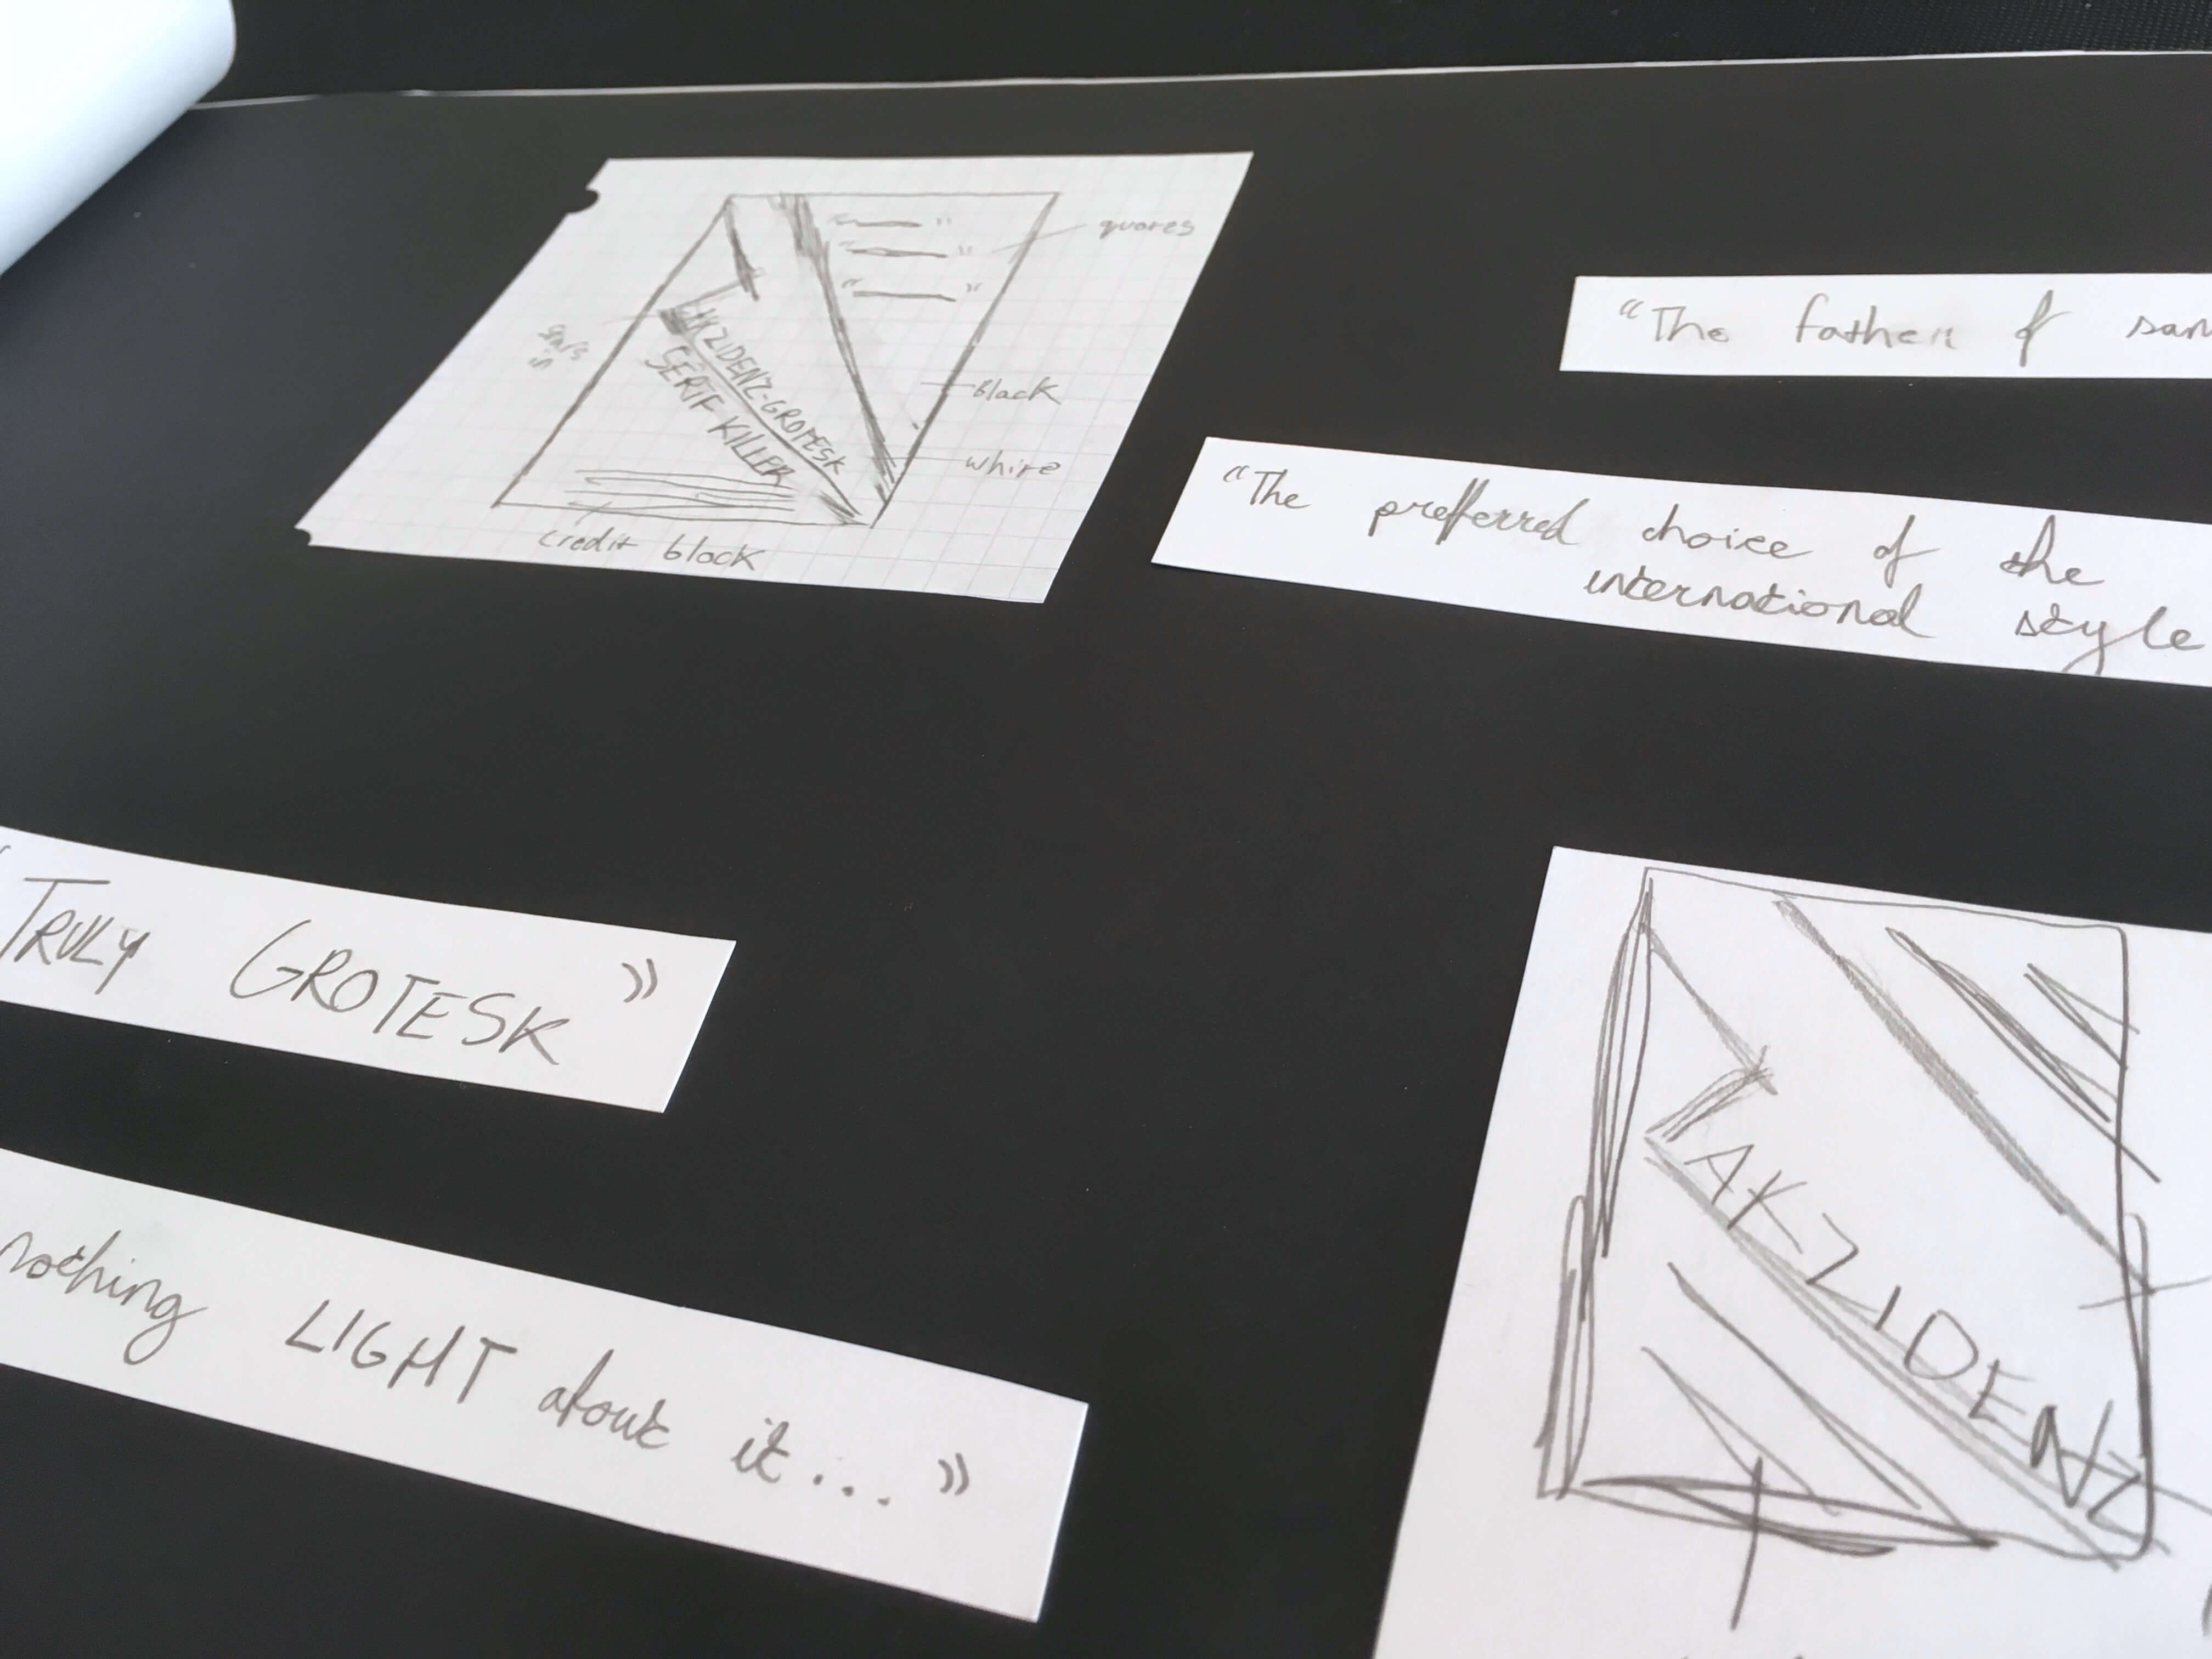 quotes
AKZIDENZ-GROTESK
SERIF KILLER
black
white
credit block
"The father of
"The preferred choice of the
international style
TRULY GROTESK"
nothing LIGHT about it..."
AKZIDENZ